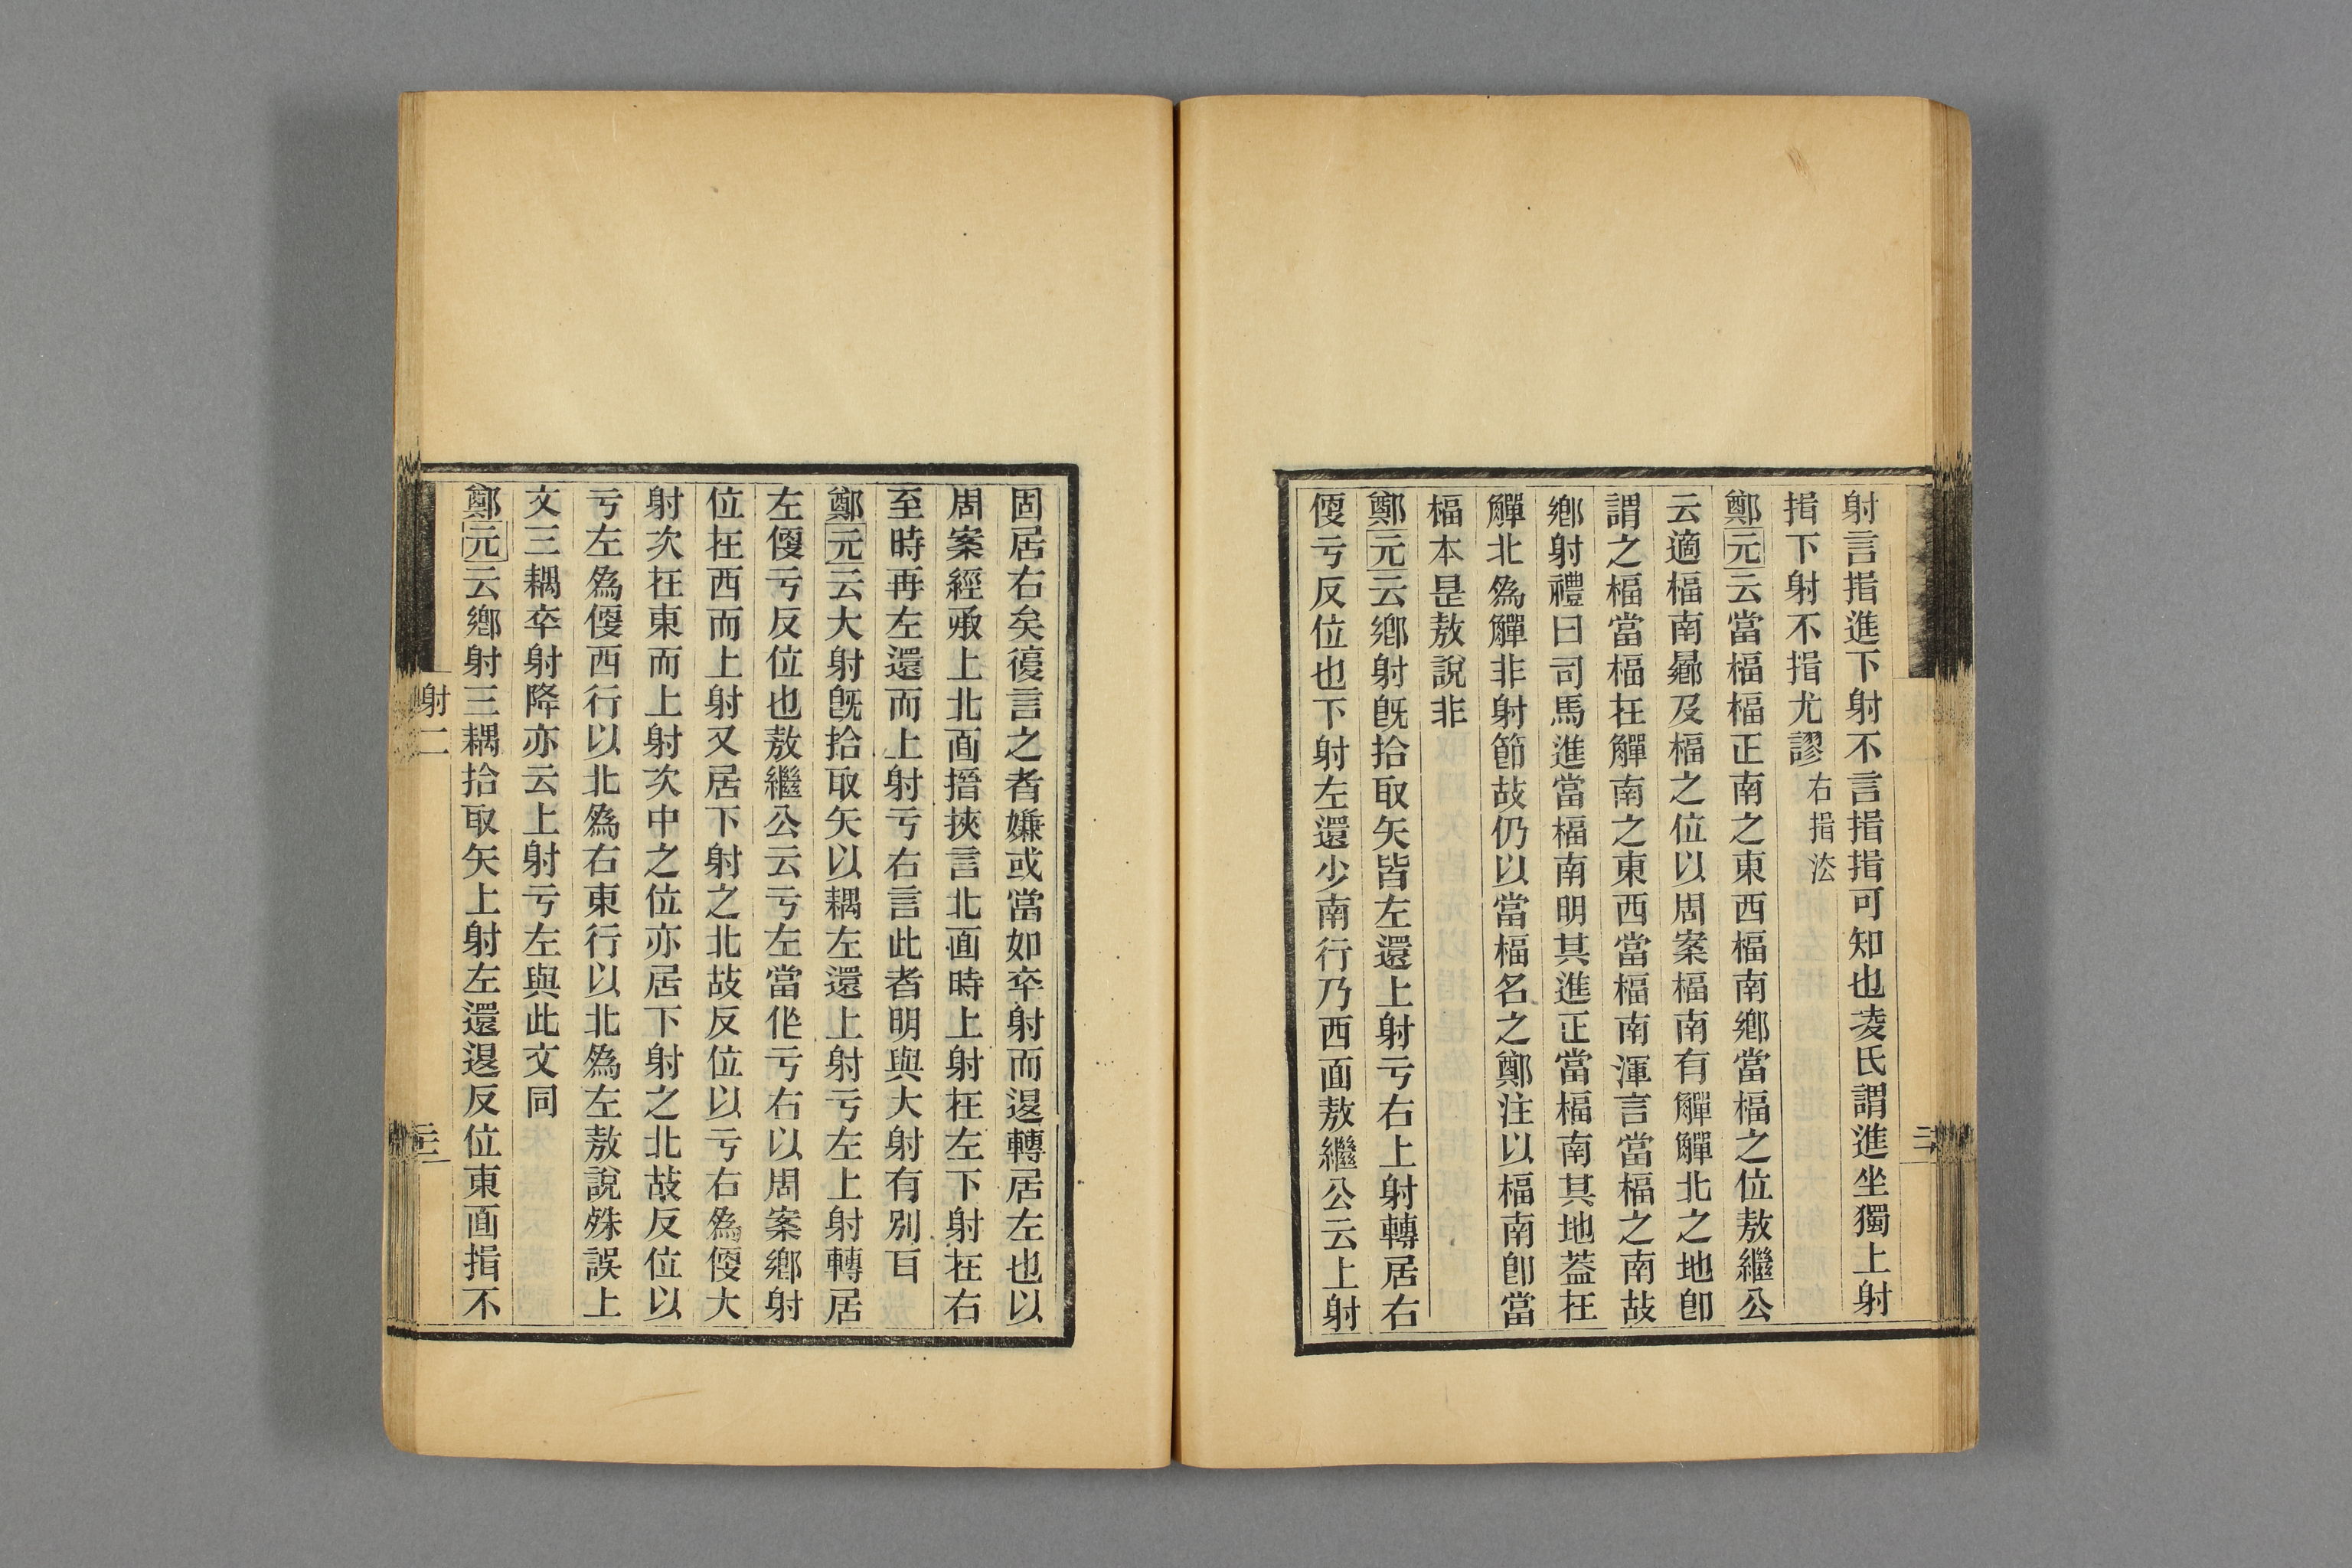 射言揖進下射不言揖揖可知也凌氏謂進坐獨上射
揖下射不揖尤謬右揖法
鄭元云當楅楅正南之東西楅南鄉當楅之位敖繼公
云適楅南曏及楅之位以周案楅南有觶觶北之地卽
謂之楅當楅在觶南之東西當楅南渾言當楅之南故
鄉射禮曰司馬進當楅南明其進正當楅南其地葢在
觶北爲觶非射節故仍以當楅名之鄭注以楅南卽當
楅本是敖說非
鄭元云鄉射旣拾取矢皆左還上射亏右上射轉居右
偄亏反位也下射左還少南行乃西面敖繼公云上射
固居右矣復言之者嫌或當如卒射而退轉居左也以
周案經𠄘上北面搢挾言北面時上射在左下射在右
至時再左還而上射亏右言此者明與大射有別百
鄭元云大射旣拾取矢以耦左還上射亏左上射轉居
左偄亏反位也敖繼公云亏左當作亏右以周案鄉射
位在西而上射又居下射之北故反位以亏右爲偄大
射次在東而上射次中之位亦居下射之北故反位以
亏左爲偄西行以北爲右東行以北爲左敖說殊誤上
文三耦卒射降亦云上射亏左與此文同
鄭元云鄉射三耦拾取矢上射左還退反位東面揖不
射二